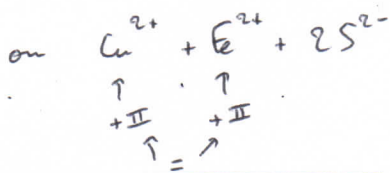 on Cu²⁺ + Fe²⁺ + 2S²⁻
↑ ↑
+II +II
↑ = ↗